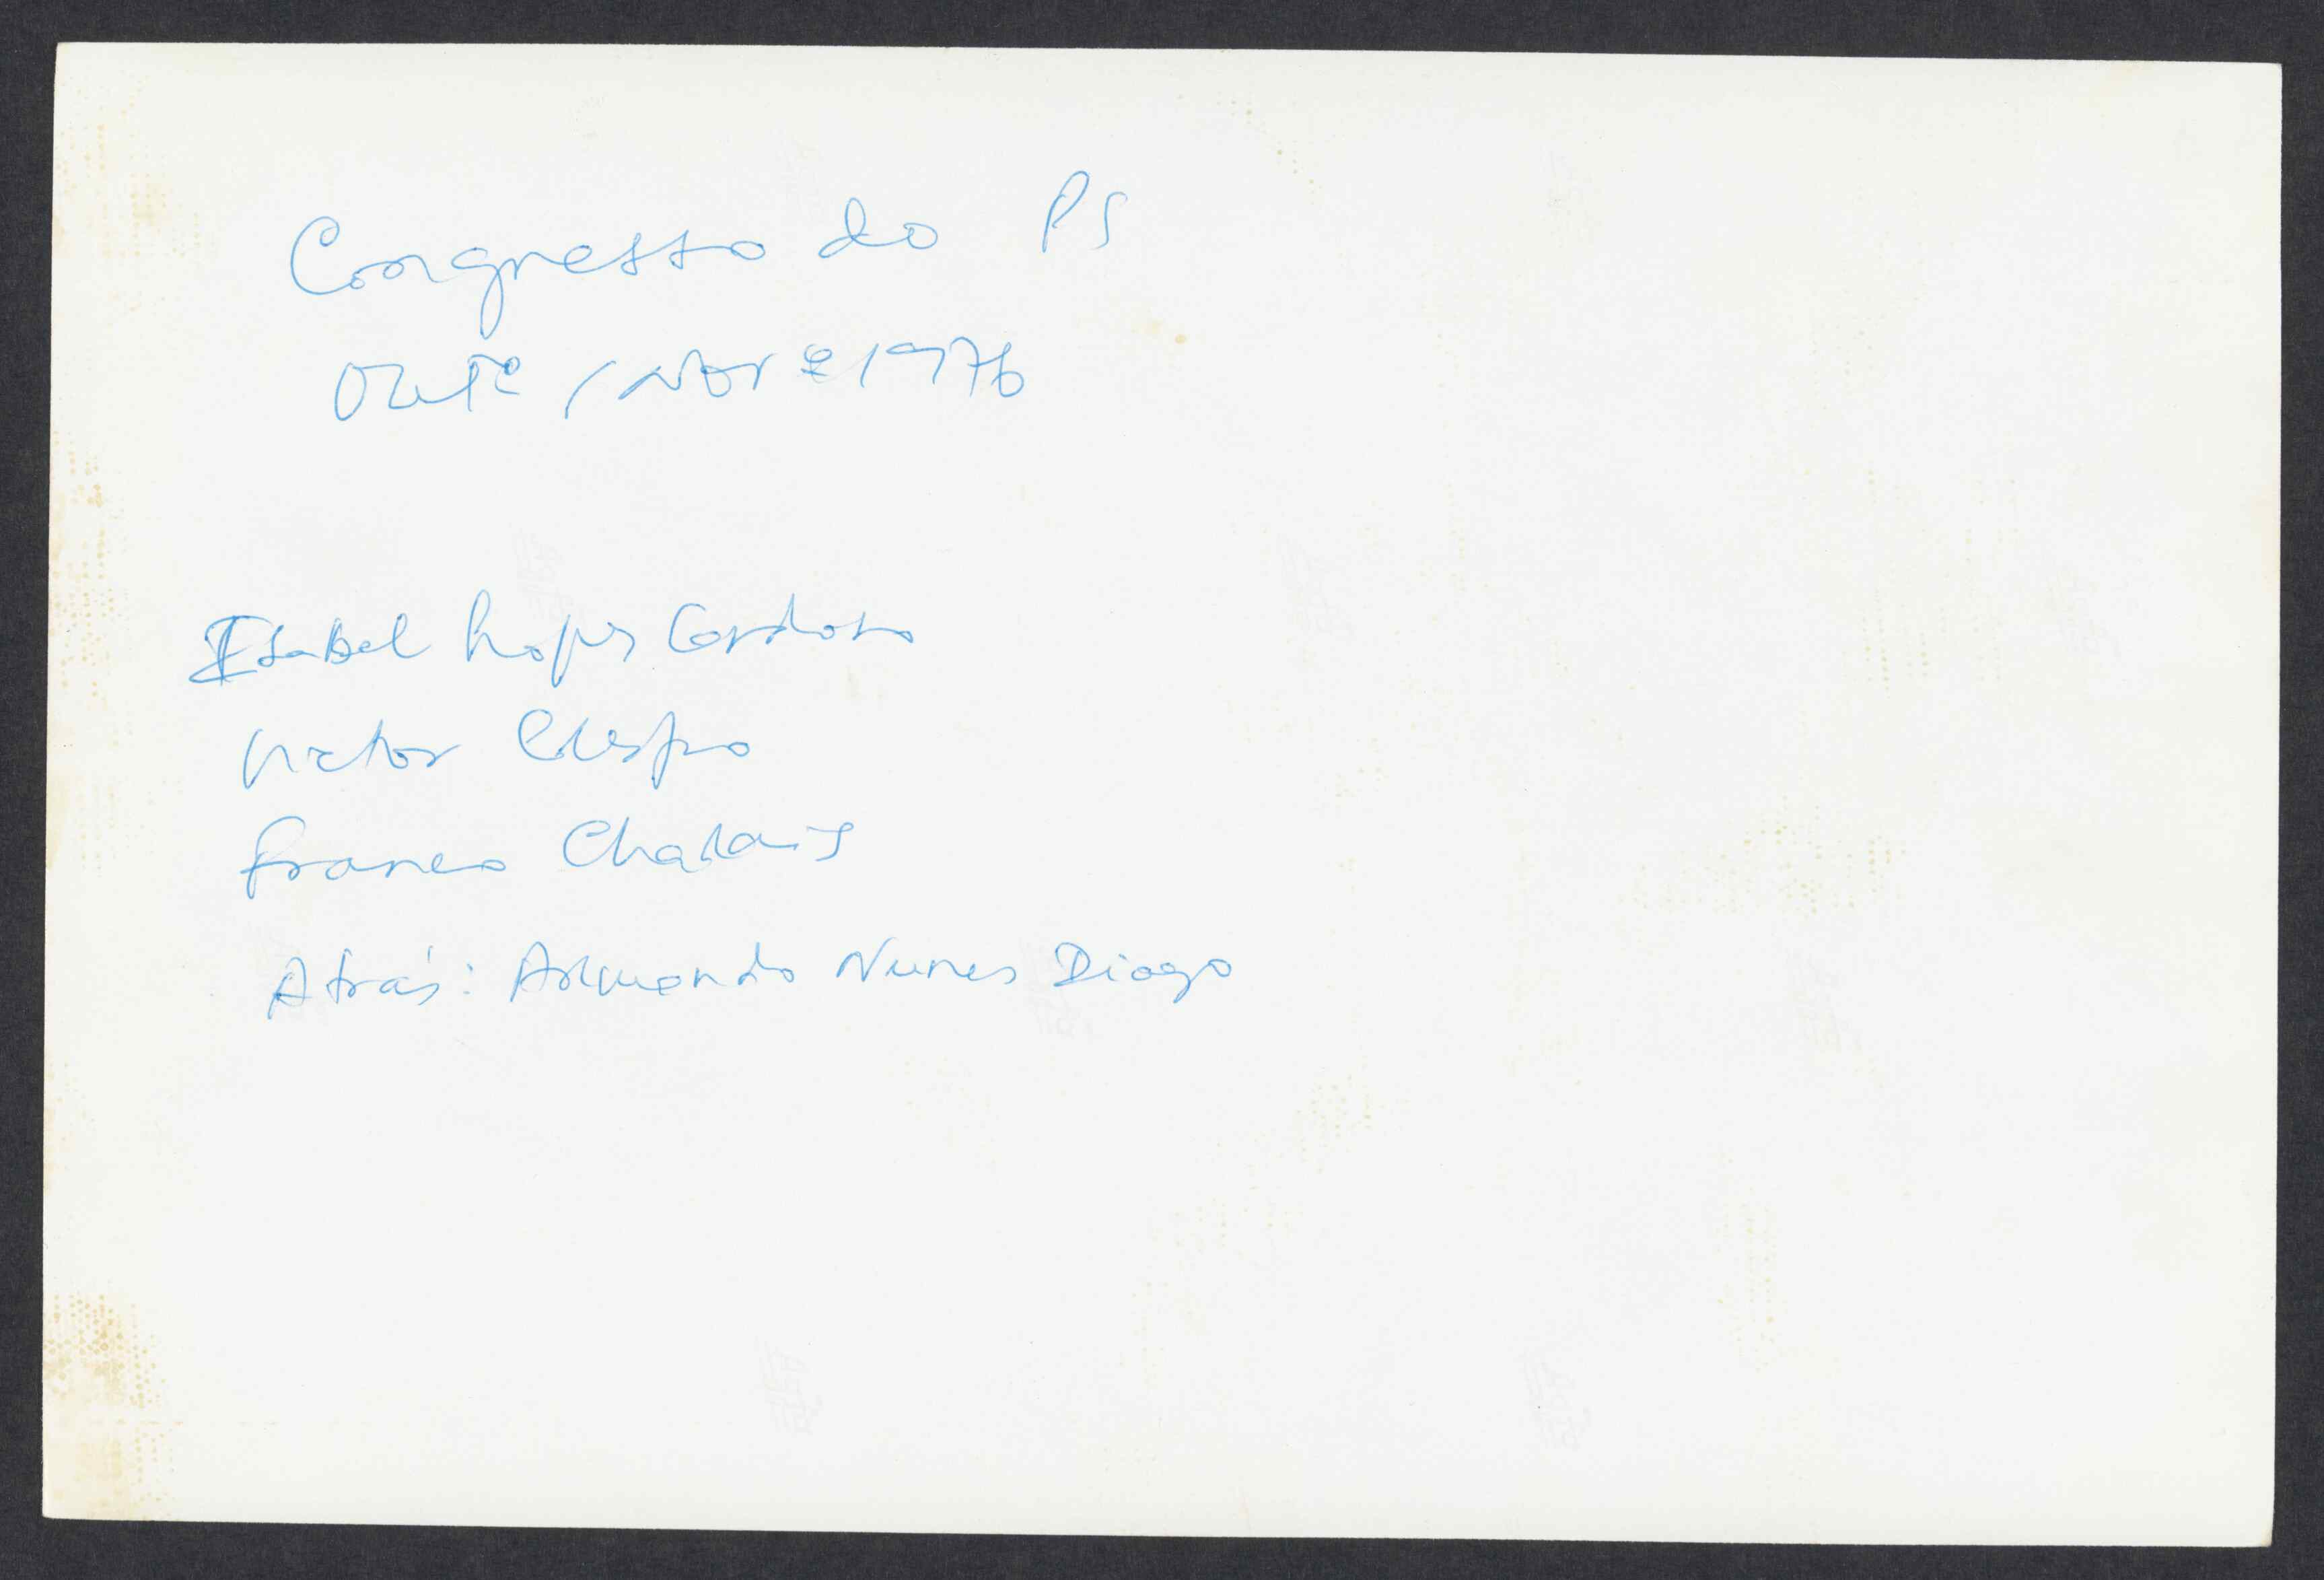 Congresso do PS
Outº / Novº 1976
Isabel Lopes Cardoso
Victor Crespo
Franco Charais
Atrás: Armando Nunes Diogo